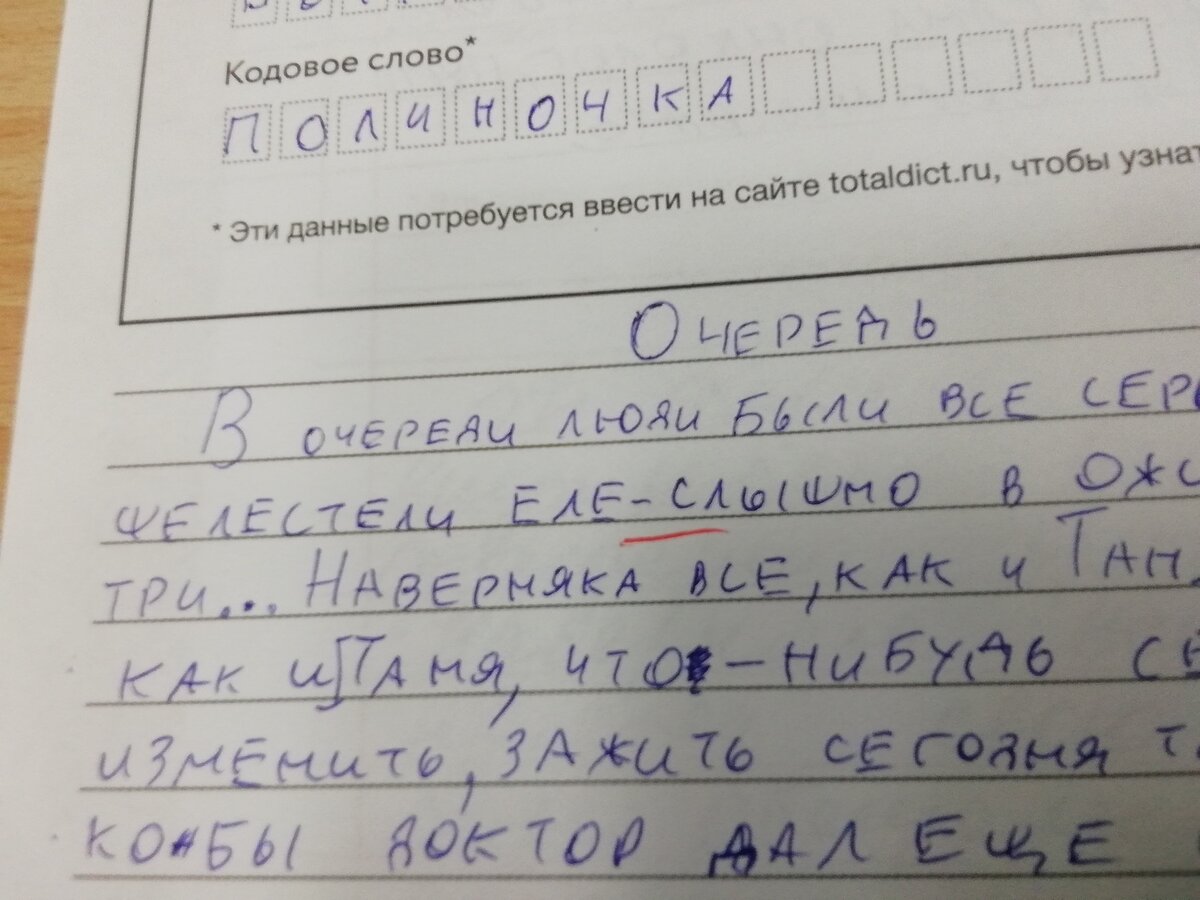 Кодовое слово*
ПОЛИНОЧКА
* Эти данные потребуется ввести на сайте totaldict.ru, чтобы
ОЧЕРЕДЬ
В ОЧЕРЕДИ ЛЮДИ БЫЛИ ВСЕ
ШЕЛЕСТЕЛИ ЕЛЕ-СЛЫШНО В
ТРИ... НАВЕРНЯКА ВСЕ, КАК И
КАК И ТАНЯ, ЧТО-НИБУДЬ
ИЗМЕНИТЬ, ЗАЖИТЬ СЕГОДНЯ
ДОКТОР ДАЛ ЕЩЕ